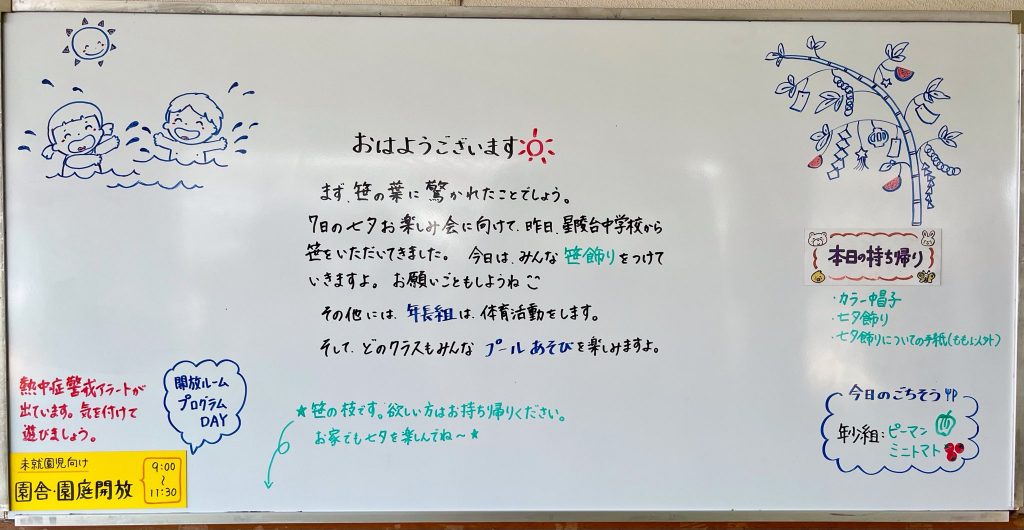 おはようございます
まず、笹の葉に驚かれたことでしょう。
7日の七夕お楽しみ会に向けて、昨日、星陵台中学校から
笹をいただいてきました。 今日は、みんな笹飾りをつけて
いきますよ。 お願いごともしようね
その他には、年長組は、体育活動をします。
そして、どのクラスもみんな プールあそびを楽しみますよ。
★笹の枝です。欲しい方はお持ち帰りください。
お家でも七夕を楽しんでね〜★
熱中症警戒アラートが
出ています。気を付けて
遊びましょう。
開放ルーム
プログラム
DAY
未就園児向け
園舎・園庭開放
9:00
〜
11:30
本日の持ち帰り
・カラー帽子
・七夕飾り
・七夕飾りについての手紙(もも以外)
今日のごちそう
年少組:ピーマン
ミニトマト